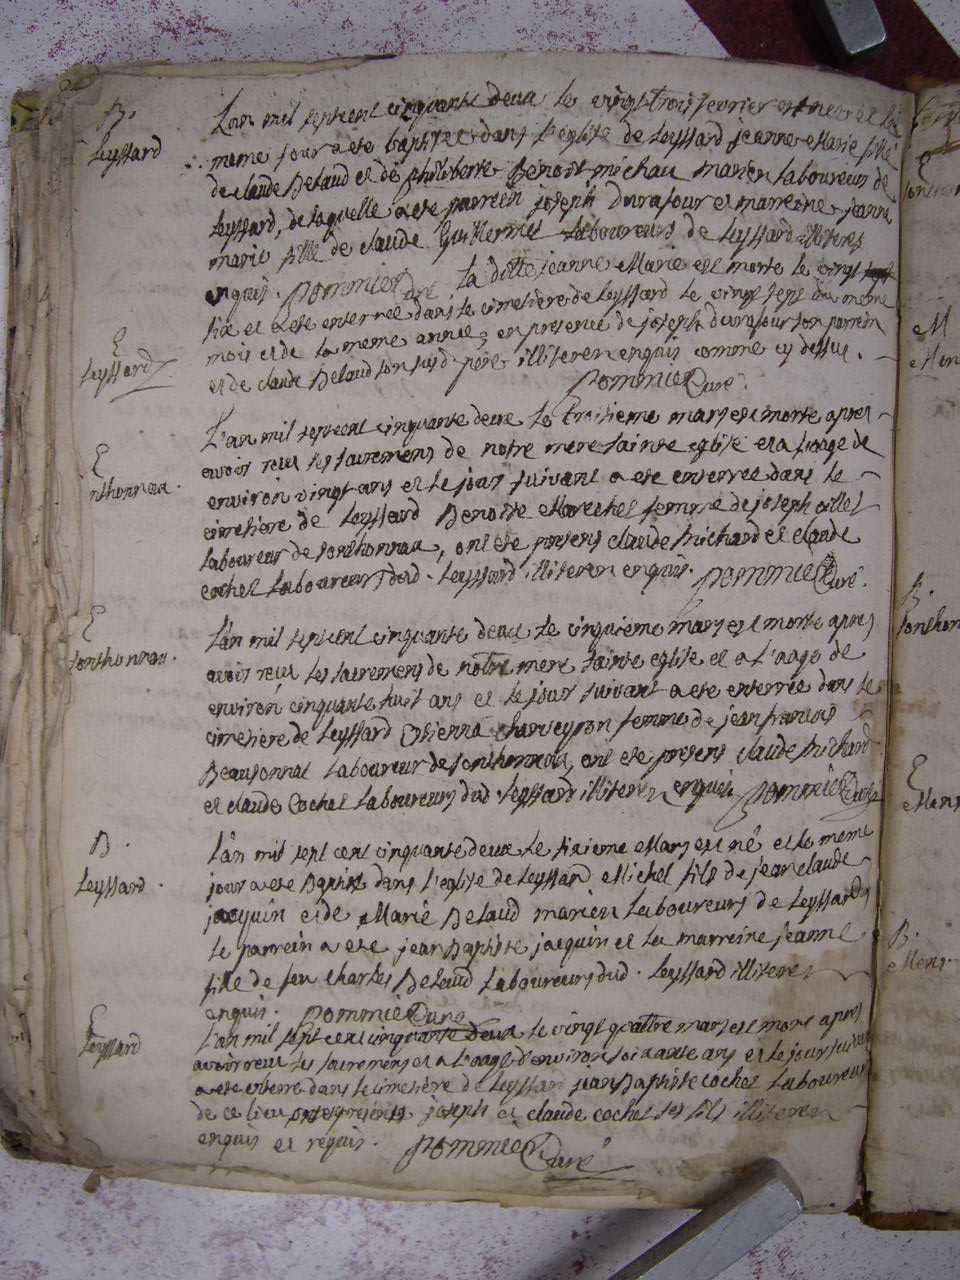 B.
Leyssard
L'an mil septcent cinquante deux le vingt trois fevrier est née et le
meme jour a ete baptisée dans l'eglise de Leyssard jeanne Marie fille
de claude Delaud et de philiberte Benoit michau mariés laboureurs de
Leyssard, de laquelle a ete parrein joseph Durafour et marreine jeanne
marie fille de claude Guillermet laboureurs de Leyssard illiteres
enquis. pommier Curé
E
Leyssard
La ditte jeanne Marie est morte le vingt
six et a ete enterrée dans le cimetière de Leyssard le vingt sept du meme
mois et de la meme année, en presence de joseph durafour son parrein
et de claude Delaud son susd. pere illiteres enquis comme cy dessus.
pommier Curé
E
L'an mil septcent cinquante deux le troisieme mars est morte apres
avoir reçu les sacremens de notre mere sainte eglise et a l'aage de
environ vingt ans et le jour suivant a ete enterrée dans le
cimetière de Leyssard Benoite Marechel femme de joseph
laboureur de sonthonnax, ont ete presens claude michard et claude
cochet laboureurs dud. Leyssard illiteres enquis. pommier Curé.
E
sonthonnax.
L'an mil septcent cinquante deux le cinquieme mars est morte apres
avoir reçu les sacremens de notre mere sainte eglise et a l'aage de
environ cinquante huit ans et le jour suivant a ete enterrée dans le
cimetière de Leyssard Etienna charveyron femme de jean francois
Beausonnat laboureur de sonthonnax, ont ete presens claude michard
et claude Cochet laboureurs dud. Leyssard illiteres enquis pommier Curé
B.
Leyssard.
L'an mil sept cent cinquante deux le sixieme Mars est né et le meme
jour a ete Baptisé dans l'eglise de Leyssard Michel fils de jean claude
jacquin et de Marie Delaud mariés laboureurs de Leyssard,
le parrein a ete jean Baptiste jacquin et la marreine jeanne
fille de feu charles Delaud laboureurs dud. Leyssard illiteres
enquis. pommier Curé
E
Leyssard
L'an mil sept cent cinquante deux le vingt quattre mars est mort apres
avoir reçu les sacremens et a l'aage d'environ soixante ans et le jour suivant
a ete enterré dans le cimetière de Leyssard jean Baptiste cochet laboureur
de ce lieu presents joseph et claude cochet ses fils illiteres
enquis et requis. pommier Curé
B.
E
B.
Mens.